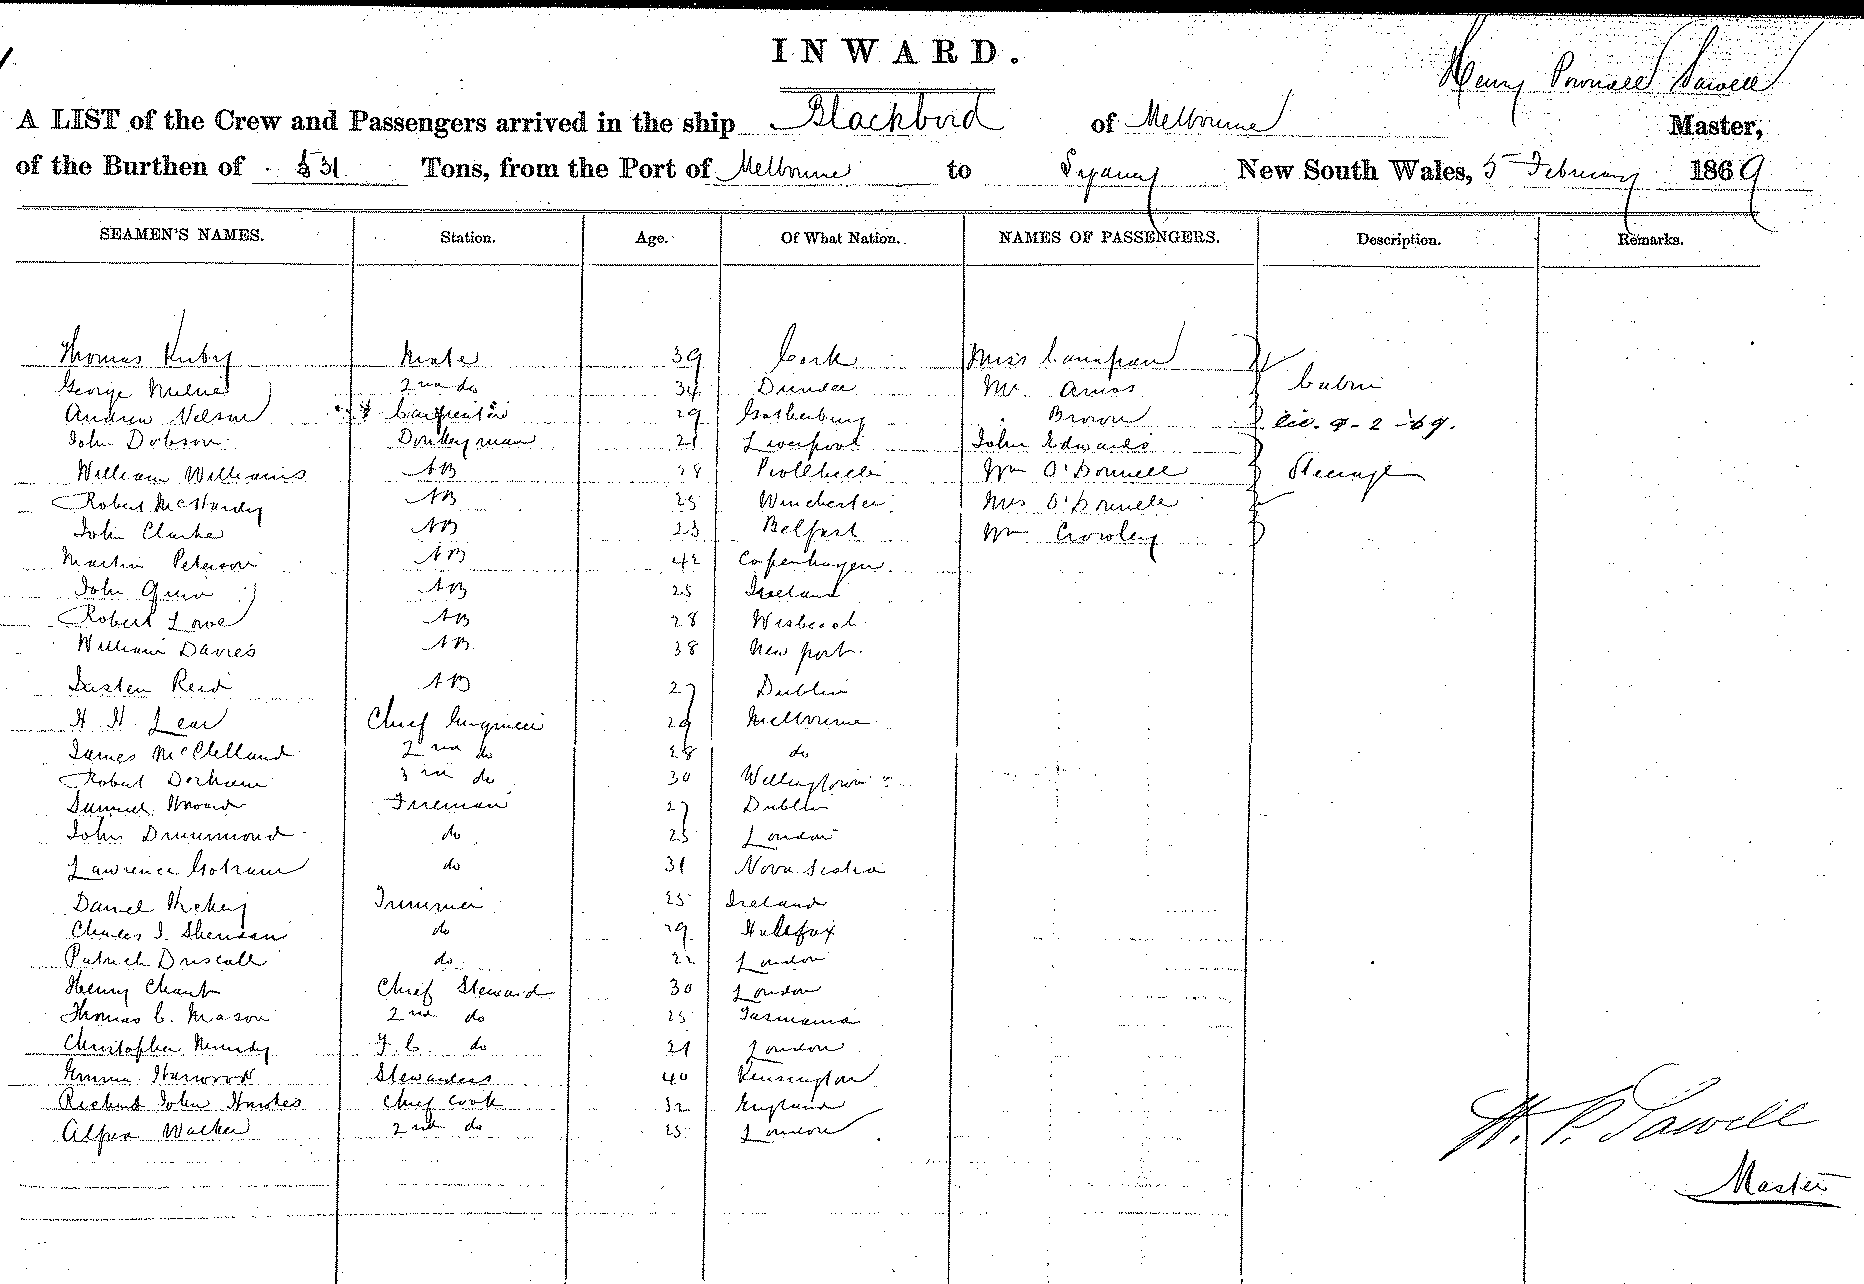 INWARD.
Henry Pownell Sawell
A LIST of the Crew and Passengers arrived in the ship Blackbird of Melbourne Master,
of the Burthen of 531 Tons, from the Port of Melbourne to Sydney New South Wales, 5 February 1869
SEAMEN'S NAMES. Station. Age. Of What Nation. NAMES OF PASSENGERS. Description. Remarks.
Thomas Kirby Mate 39 Cork Miss
George Milne 2nd do 34 Dundee Mr. Amos Cabin
Andrew Nelson Carpenter 29 Gothenburg Brown 9-2-69.
John Dobson Donkeyman 21 Liverpool John Edwards
William Williams AB 28 Wm O'Donnell Steerage
Robert McHardy AB 25 Winchester Mrs O'Donnell
John Clarke AB 23 Belfast Wm Crowley
Martin Peterson AB 42 Copenhagen.
John AB 25 Ireland
Robert Lowe AB 28 Wisbeach
William Davies AB 38 New port.
Reid AB 27 Dublin
H. H. Lear Chief Engineer 29 Melbourne
James McClelland 2nd do 28 do
Robert 3rd do 30
Samuel Fireman 27 Dublin
John Drummond do 25 London
Lawrence do 31 Nova Scotia
Daniel Trimmer 25 Ireland
Charles Sheridan do 29 Halifax
Patrick Driscoll do 22 London
Henry Chant Chief Steward 30 London
Thomas C. Mason 2nd do 25 Tasmania
Christopher Mundy F. C. do 21 London
Emma Harwood Stewardess 40 Kensington
Richard John Hawkes Chief Cook 32 England
Alfred Walker 2nd do 25 London
H. P. Sawell
Master